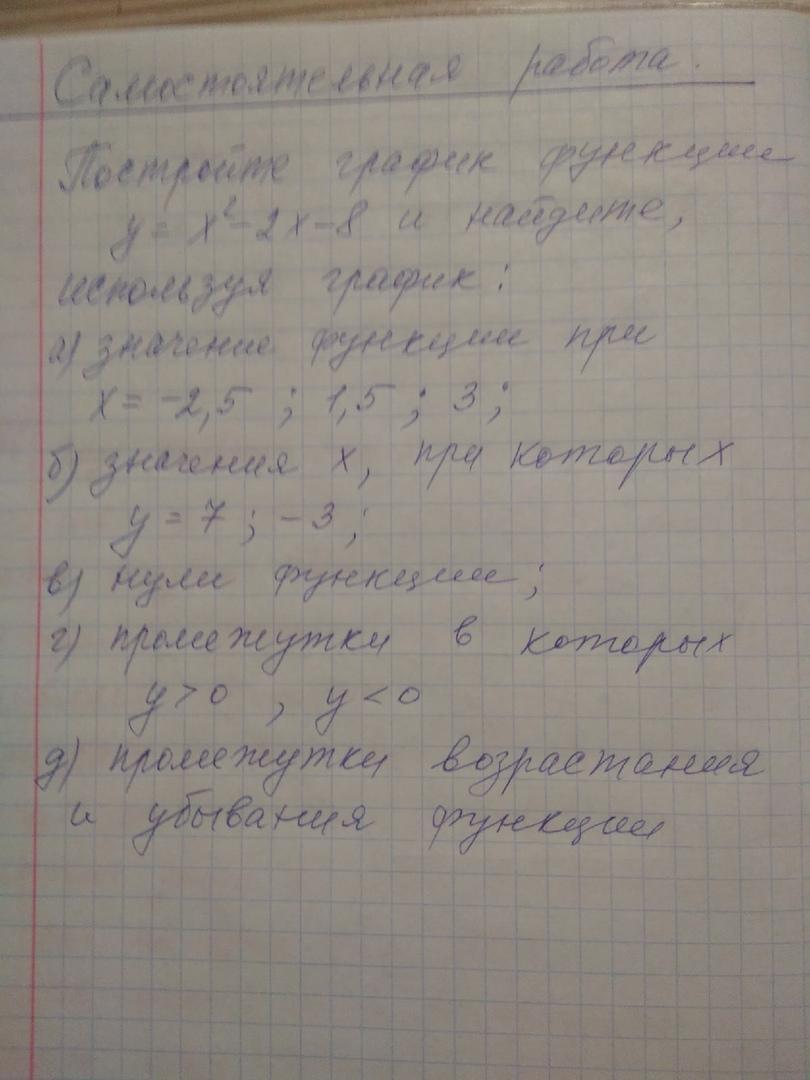 Самостоятельная работа.
Постройте график функции
y = x² - 2x - 8 и найдите,
используя график:
а) значение функции при
x = -2,5 ; 1,5 ; 3 ;
б) значения x, при которых
y = 7 ; -3 ;
в) нули функции ;
г) промежутки в которых
y > 0 , y < 0
д) промежутки возрастания
и убывания функции